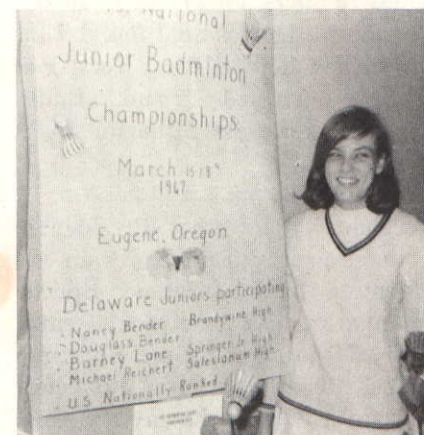 National
Junior Badminton
Championships
March 15-18
1967
Eugene, Oregon
Delaware Juniors participating
Nancy Bender Brandywine High
Douglass Bender
Barney Lane Springer Jr. High
Michael Reichert Salesianum High
U.S. Nationally Ranked